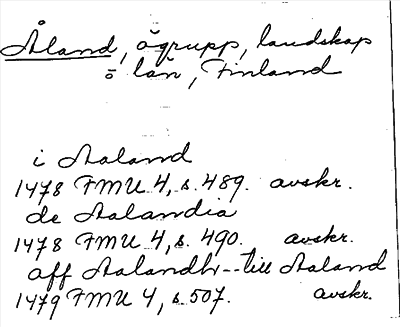 Åland, ögrupp, landskap
o län, Finland
i Aaland
1478 FMU 4, s. 489. avskr.
de Aalandia
1478 FMU 4, s. 490. avskr.
aff Aalandh -- till Aaland
1479 FMU 4, s. 507. avskr.